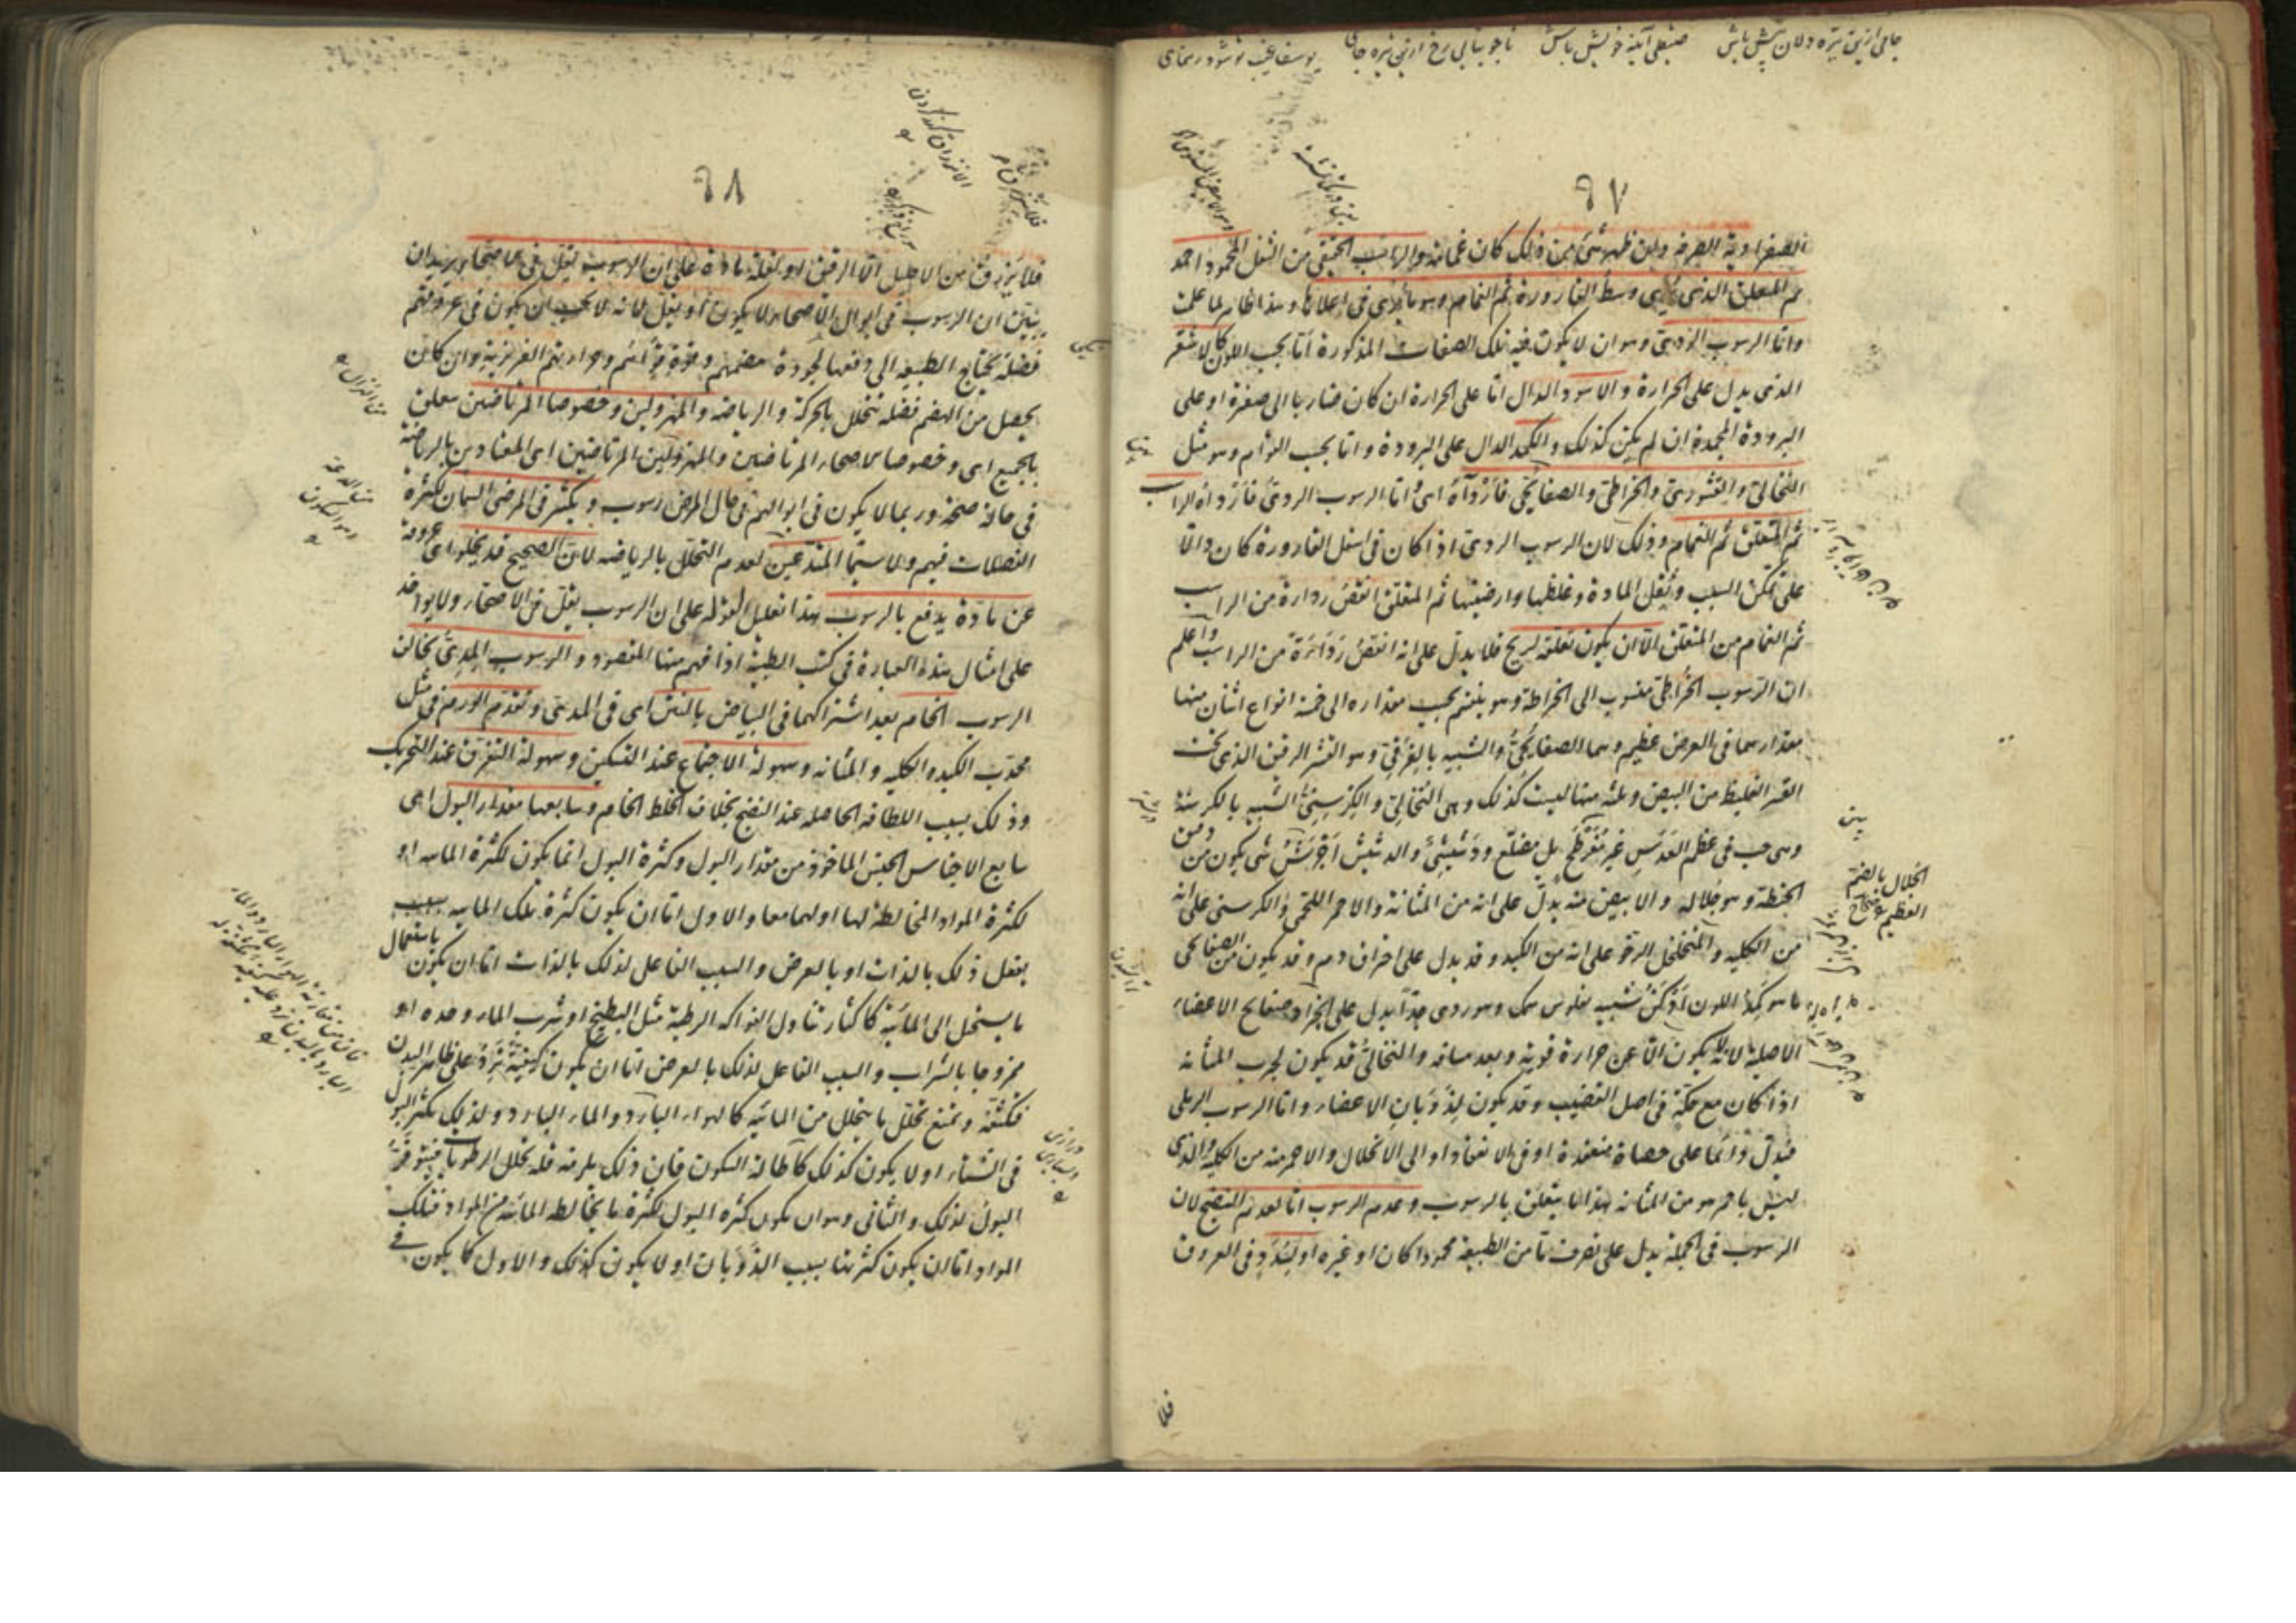 ٩٧
الصفراوية الصرفة وان ظهر شئ من ذلك كان غمامة والراسب الحقيقي من الثفل المحمود احمد
ثم المتعلق الذي يرى وسط القارورة ثم الغمام وهو ما يرى في اعلاها وهذا ظاهر لما علمت
واما الرسوب الردئ وهو ان لا يكون فيه تلك الصفات المذكورة اما بحسب اللون كالاشقر
الذي يدل على الحرارة والاسود الدال اما على الحرارة ان كان ضاربا الى صفرة او على
البرودة المجمدة ان لم يكن كذلك والكمد الدال على البرودة واما بحسب القوام وهو مثل
النخالي والقشوري والخراطي والصفايحي فاردأه اي واما الرسوب الردئ فاردأه الراسب
ثم المتعلق ثم الغمام وذلك لان الرسوب الردئ اذا كان في اسفل القارورة كان دالا
على تمكن السبب وثقل المادة وغلظها وارضيتها ثم المتعلق انقص رداءة من الراسب
ثم الغمام من المتعلق الا ان يكون تعلقه لريح فلا يدل على انه انقص رداءة من الراسب واعلم
ان الرسوب الخراطي منسوب الى الخراطة وهو ينقسم بحسب مقداره الى خمسة انواع اثنان منها
مقدارهما في العرض عظيم وهما الصفايحي والشبيه بالغرقئ وهو القشر الرقيق الذي تحت
القشر الغليظ من البيض وثلثة منها ليست كذلك وهي النخالي والكرسني الشبيه بالكرسنة
وهي حب في عظم العدس غير مفرطح بل مضلع ودشيشي والدشيش اجرش شئ يكون من دق
الحنطة وهو جلاله والابيض منه يدل على انه من المثانة والاحمر اللحمي والكرسني على انه
من الكلية والمتخلخل الرخو على انه من الكبد وقد يدل على احتراق دم وقد يكون من الصفايحي
ما هو كمد اللون ادكن شبيه بفلوس سمك وهو ردي جدا يدل على انجراد صفايح الاعضاء
الاصلية لانه لا يكون الا عن حرارة قوية وبعد مسافة والنخالي قد يكون لجرب المثانة
اذا كان مع حكة في اصل القضيب وقد يكون لذوبان الاعضاء واما الرسوب الرملي
فيدل دائما على حصاة منعقدة او في الانعقاد او الى الانحلال والاحمر منه من الكلية والذي
ليس باحمر هو من المثانة هذا ما يتعلق بالرسوب وعدم الرسوب اما لعدم النضج لان
الرسوب في الجملة يدل على تصرف ما من الطبيعة محمودا كان او غيره او لسدد في العروق
الجلال بالضم
العظيم
فلا
٩٨
فلا ينزرق من الاحليل الا الرقيق او لقلة مادة على ان الرسوب يقل في الاصحاء يريد ان
يبين ان الرسوب في ابوال الاصحاء لا يكون او يقل لانه لا يجب ان يكون في عروقهم
فضلة يحتاج الطبيعة الى دفعها لجودة هضمهم وقوة قواهم وحرارتهم الغريزية وان كان
يحصل من الهضم فضلة تتحلل بالحركة والرياضة والمهزولين وخصوصا المرتاضين متعلق
بالجميع اي وخصوصا الاصحاء المرتاضين والمهزولين المرتاضين اي المعتادين بالرياضة
في حالة صحة وربما لا يكون في ابوالهم في حال المرض رسوب ويكثر في المرضى السمان لكثرة
الفضلات فيهم ولا سيما المتدعين لعدم التحلل بالرياضة لان الصحيح قد يخلو اي عروقه
عن مادة يدفع بالرسوب هذا تعليل لقوله على ان الرسوب يقل في الاصحاء ولا يواخذ
على امثال هذه العبارة في كتب الطبية اذا فهم منها المقصود والرسوب المدي يخالف
الرسوب الخام بعد اشتراكهما في البياض بالنتن اي في المدي وتقدم الورم في مثل
محدب الكبد والكلية والمثانة وسهولة الاجتماع عند التسكين وسهولة التفرق عند التحريك
وذلك بسبب اللطافة الحاصلة عند النضج بخلاف الخلط الخام وسابعها مقدار البول اي
سابع الاجناس الجنس الماخوذ من مقدار البول وكثرة البول انما يكون لكثرة المائية او
لكثرة المواد المخالطة لها او لهما معا والاول اما ان يكون كثرة تلك المائية بسبب
يفعل ذلك بالذات او بالعرض والسبب الفاعل لذلك بالذات اما ان يكون باستعمال
ما يستحيل الى المائية كاكثار تناول الفواكه الرطبة مثل البطيخ او شرب الماء وحده او
ممزوجا بالشراب والسبب الفاعل لذلك بالعرض اما ان يكون كيفية ترد على ظاهر البدن
فتكثفه وتمنع تحلل ما يتحلل من المائية كالهواء البارد والماء البارد ولذلك يكثر البول
في الشتاء او لا يكون كذلك كاطالة السكون فان ذلك يلزمه قلة تحلل الرطوبات فيتوفر
البول لذلك والثاني وهو ان يكون كثرة البول لكثرة ما يخالط المائية من المواد فتلك
المواد اما ان يكون كثرتها بسبب الذوبان او لا يكون كذلك والاول كما يكون في